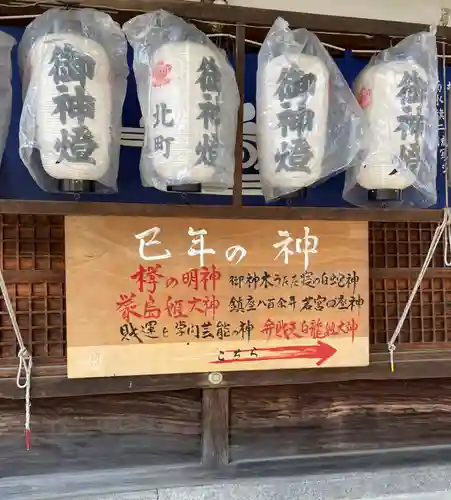 御神燈
北町
御神燈
御神燈
御神燈
巳年の神
欅の明神
御神木うたた寝の白蛇神
厳島姫大神
鎮座八百余年 若宮田産神
財運と学問芸能の神
弁財天白龍姫大神
こちら